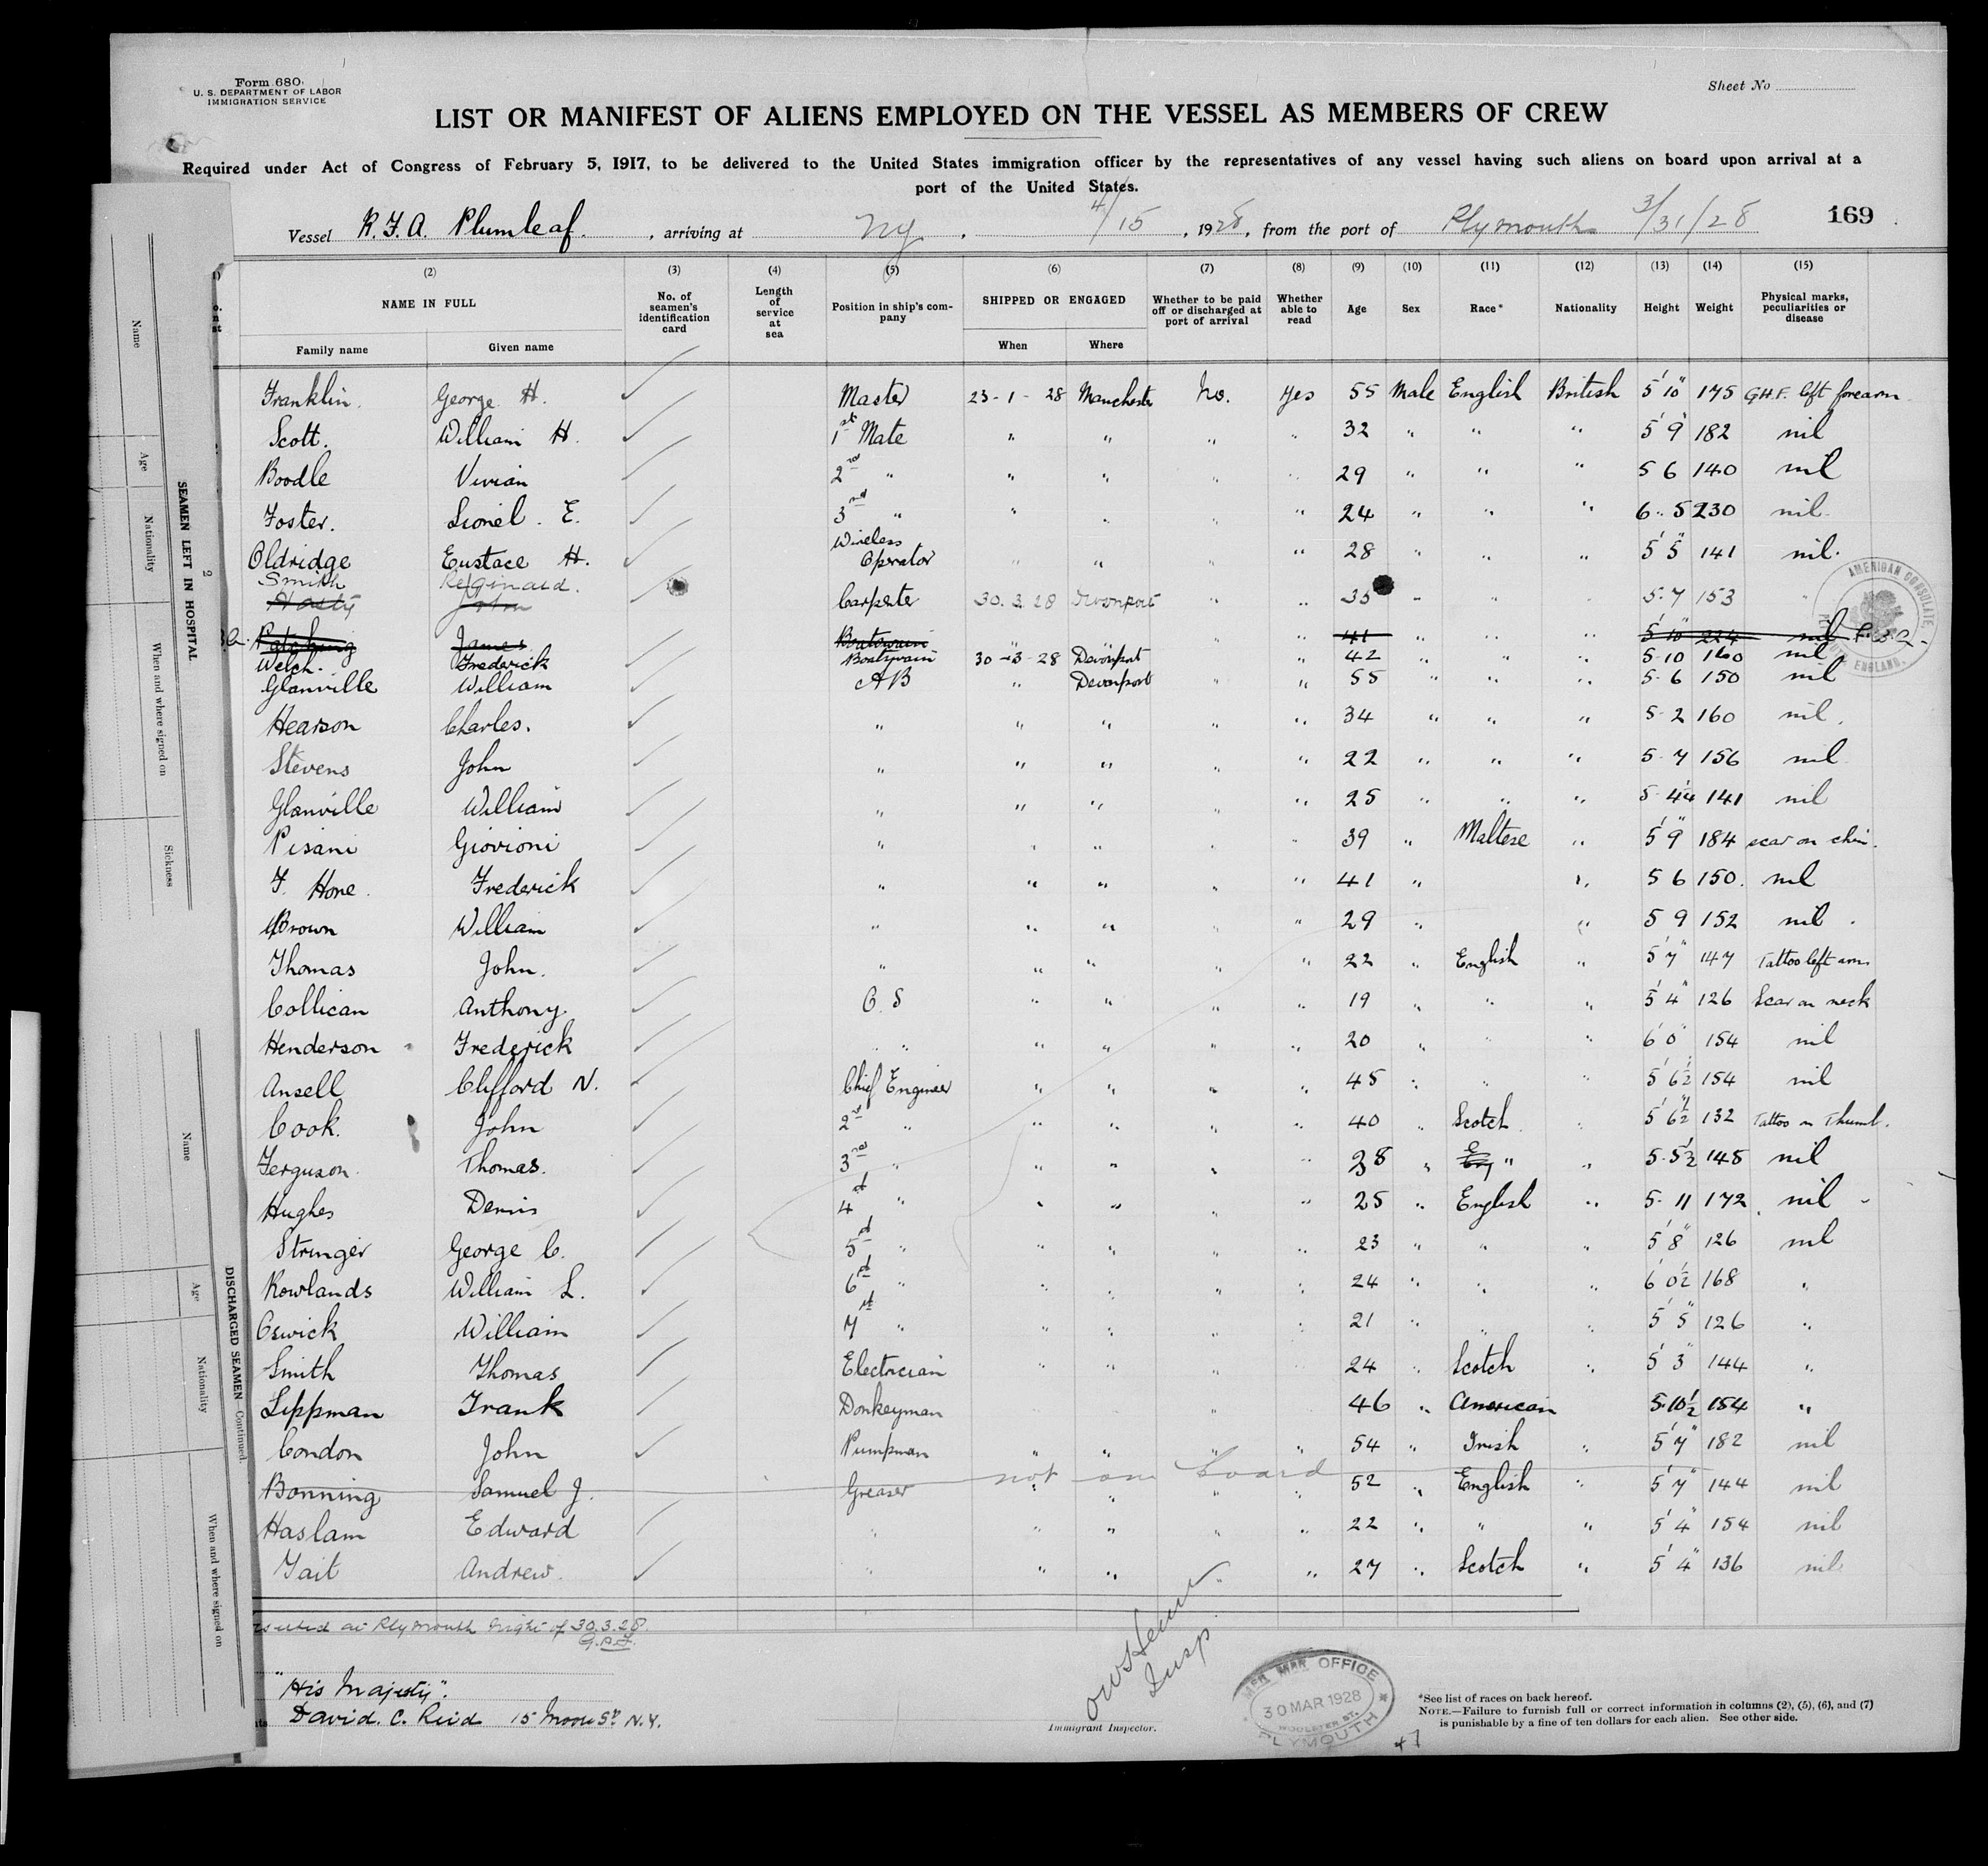 Form 680
U. S. DEPARTMENT OF LABOR
IMMIGRATION SERVICE
Sheet No
LIST OR MANIFEST OF ALIENS EMPLOYED ON THE VESSEL AS MEMBERS OF CREW
Required under Act of Congress of February 5, 1917, to be delivered to the United States immigration officer by the representatives of any vessel having such aliens on board upon arrival at a
port of the United States.
Vessel R.F.A. Plumleaf. , arriving at NY , 4/15 , 1928, from the port of Plymouth 3/31/28 169
(2) (3) (4) (5) (6) (7) (8) (9) (10) (11) (12) (13) (14) (15)
NAME IN FULL No. of seamen's identification card Length of service at sea Position in ship's company SHIPPED OR ENGAGED Whether to be paid off or discharged at port of arrival Whether able to read Age Sex Race* Nationality Height Weight Physical marks, peculiarities or disease
Family name Given name When Where
Franklin. George H. Master 23-1-28 Manchester No. Yes 55 Male English British 5'10" 175 G.H.F. left forearm
Scott. William H. 1st Mate " " " " 32 " " " 5 9 182 nil
Boodle Vivian 2nd " " " " " 29 " " " 5 6 140 nil
Foster. Lionel. E. 3rd " " " " " 24 " " " 6 5 230 nil
Oldridge Eustace H. Wireless Operator " " " " 28 " " " 5'5" 141 nil.
Smith Reginald.
Hasty John Carpenter 30.3.28 Devonport " " 35 " " " 5-7 153 "
Patching James Boatswain " " " " 41 " " " 5'10" 224 nil
Welch. Frederick Boatswain 30-3-28 Devonport " 42 " " " 5-10 160 nil
Glanville William AB " Devonport " " 55 " " " 5-6 150 nil
Hearson Charles. " " " " " 34 " " " 5-2 160 nil.
Stevens John " " " " " 22 " " " 5-7 156 nil
Glanville William " " " " " 25 " " " 5-4 141 nil
Pisani Giovioni " " " " " 39 " Maltese " 5'9" 184 scar on chin.
F. Hone. Frederick " " " " " 41 " " 5 6 150. nil
Brown William " " " " " 29 " " 5 9 152 nil.
Thomas John. " " " " " 22 " English " 5'7" 147 Tattoo left arm
Collican Anthony. O.S " " " " 19 " " " 5'4" 126 Scar on neck
Henderson Frederick " " " " " 20 " " " 6'0" 154 nil
Ansell Clifford N. Chief Engineer " " " " 45 " " " 5'6½ 154 nil
Cook. John 2nd " " " " " 40 " Scotch " 5'6½ 132 Tattoo on Thumb.
Ferguson. Thomas. 3rd " " " " " 28 " " " 5-5½ 145 nil
Hughes Denis 4 " " " " " 25 " English " 5-11 172 nil
Stringer George C. 5 " " " " " 23 " " " 5'8" 126 nil
Rowlands William L. 6 " " " " " 24 " " " 6'0½ 168 "
Oswick William 7 " " " " " 21 " " " 5'5" 126 "
Smith Thomas Electrician " " " " 24 " Scotch " 5'3" 144 "
Lippman Frank Donkeyman " 46 " American 5-10½ 154 "
Condon John Pumpman " " " " 54 " Irish " 5'7" 182 nil
Bonning Samuel J. Greaser not on board " " " " 52 " English " 5'7" 144 nil
Haslam Edward " " " " " 22 " " " 5'4" 154 nil
Tait Andrew. " " " " " 27 " Scotch " 5'4" 136 nil
at Plymouth night of 30.3.28.
"His Majesty".
David. C. Reid 15 Moore St. N.Y.
Insp
Immigrant Inspector.
OFFICE
30 MAR 1928
PLYMOUTH
AMERICAN CONSULATE
ENGLAND.
*See list of races on back hereof.
NOTE.—Failure to furnish full or correct information in columns (2), (5), (6), and (7)
is punishable by a fine of ten dollars for each alien. See other side.
SEAMEN LEFT IN HOSPITAL
2
Name
Age
Nationality
When and where signed on
Sickness
DISCHARGED SEAMEN—Continued.
Name
Age
Nationality
When and where signed on